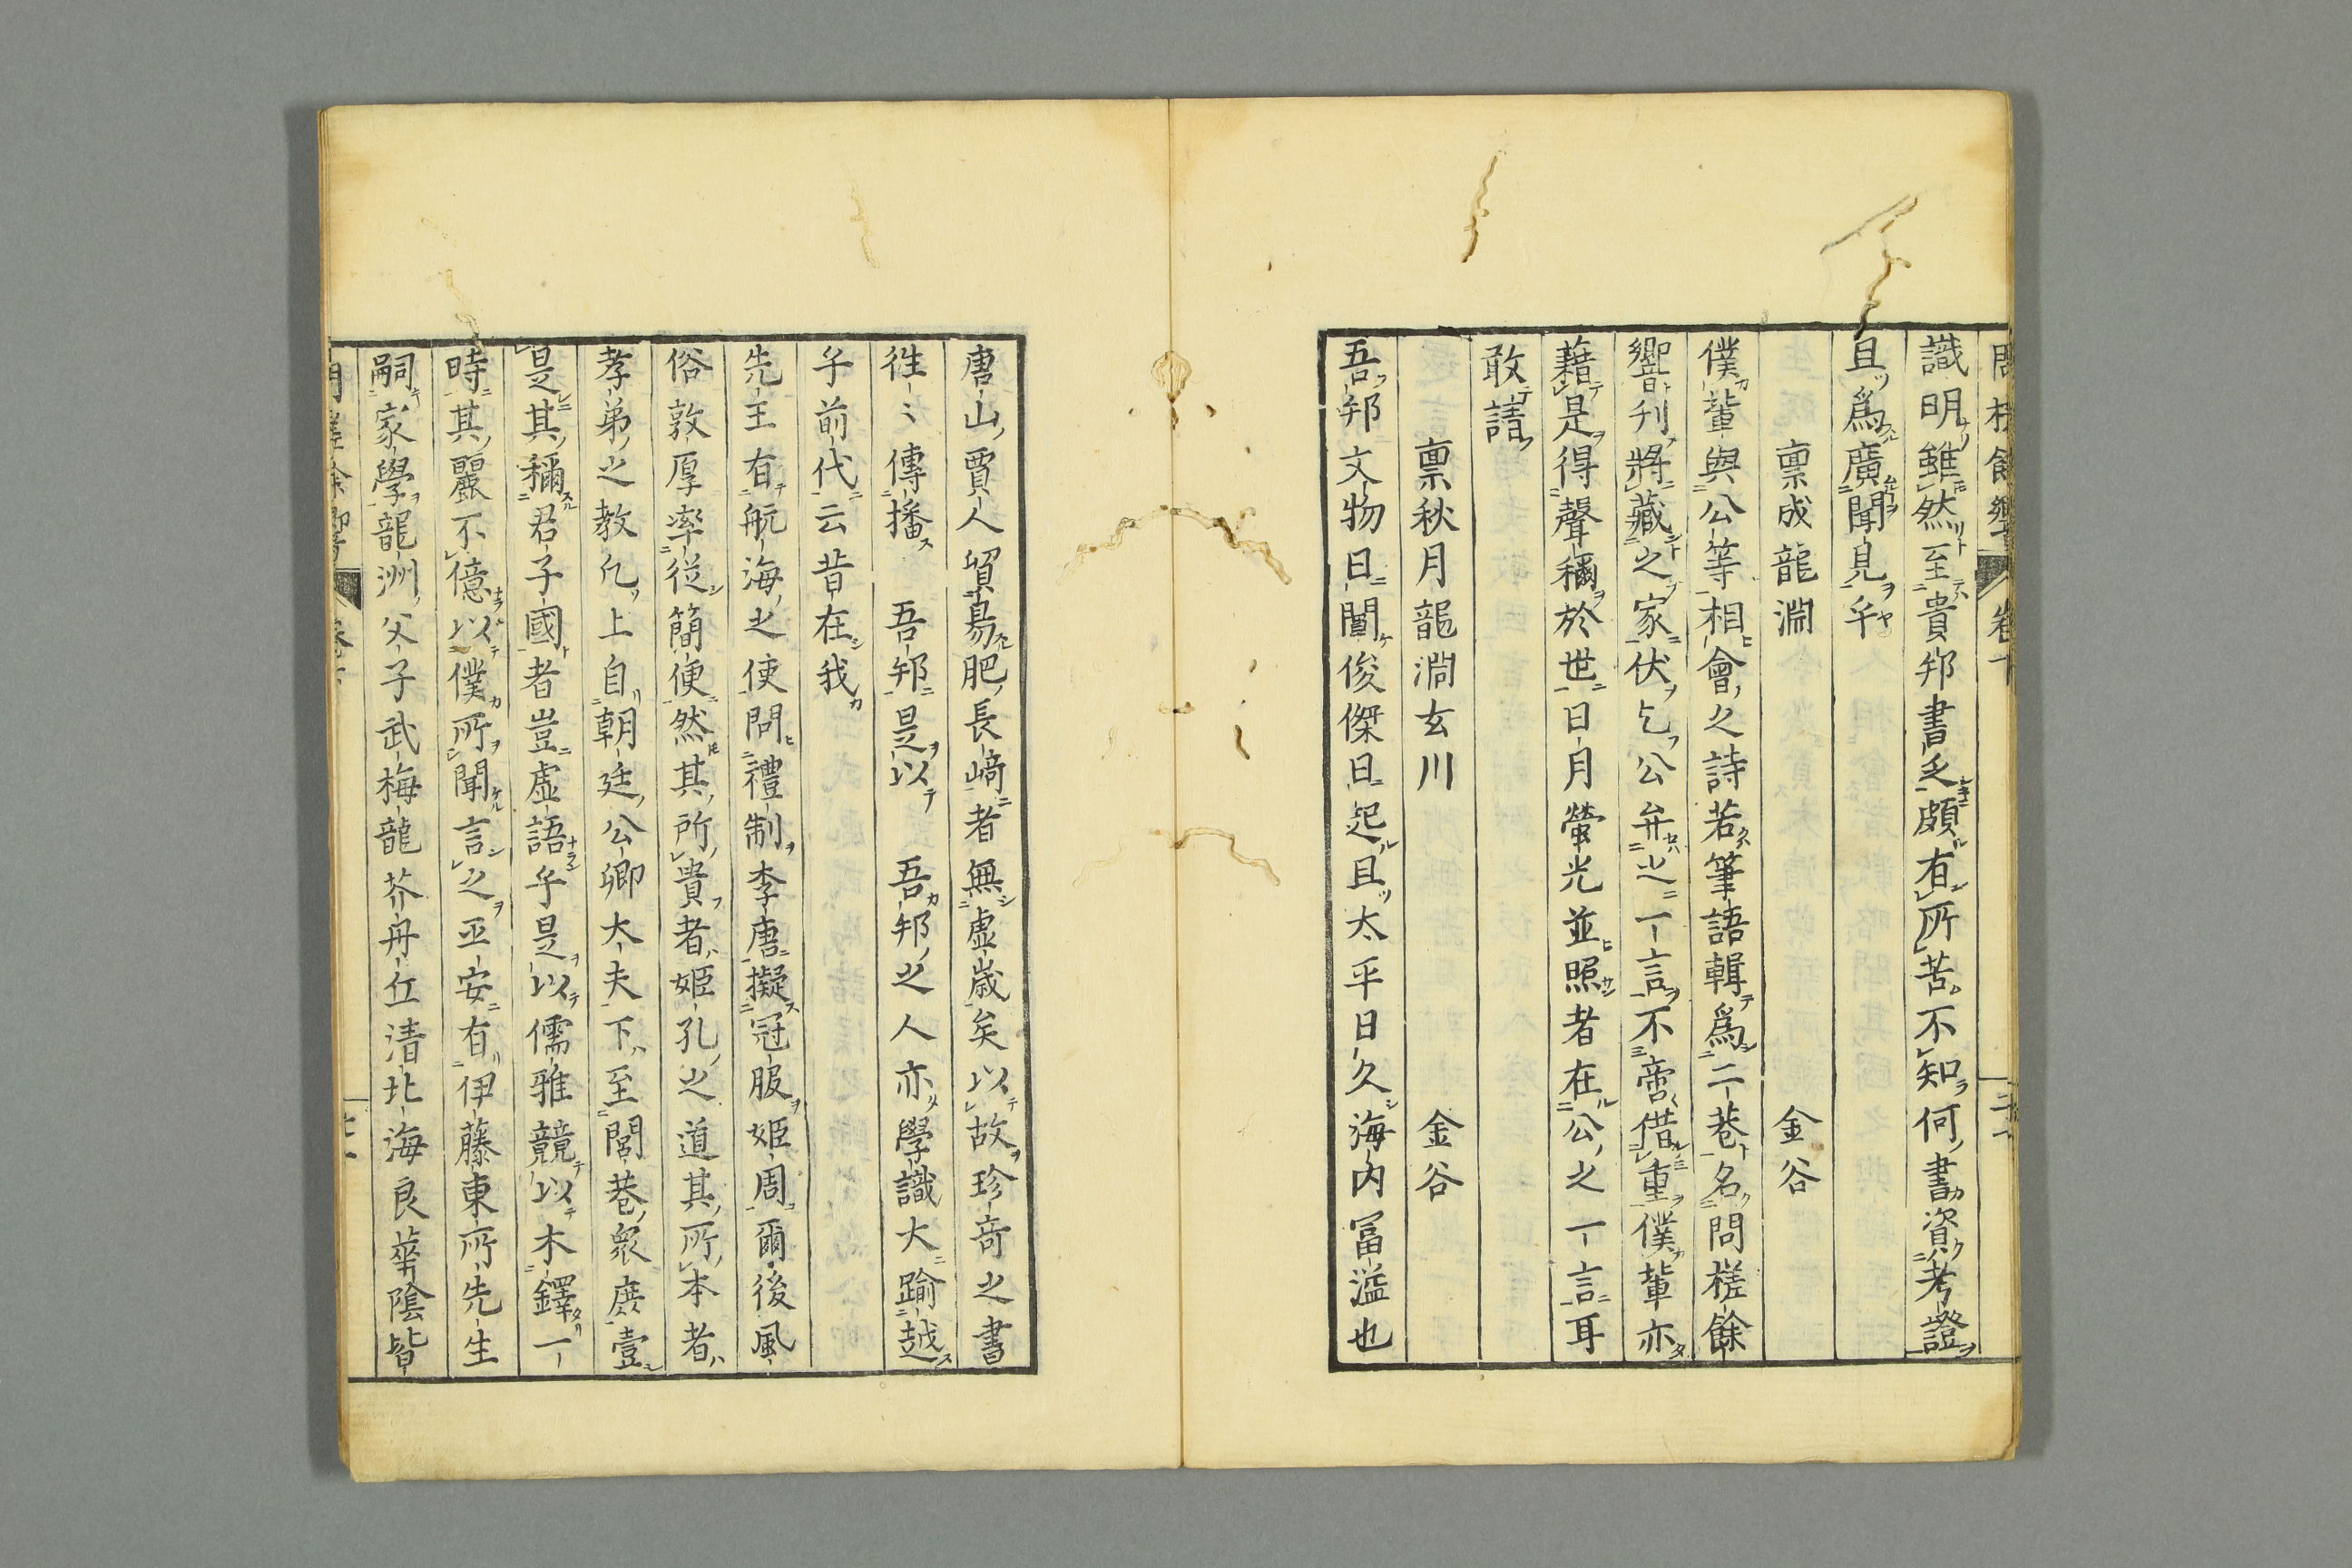 問槎餘響 卷下
識明雖然至貴邦書乏頗有所苦不知何書資考證
且爲廣聞見乎
稟成龍淵 金谷
僕輩與公等相會之詩若筆語輯爲二巻名問槎餘
響刊將藏之家伏乞公弁之一言不啻借重僕輩亦
藉是得聲稱於世日月螢光並照者在公之一言耳
敢請
稟秋月龍淵玄川 金谷
吾邦文物日闡俊傑日起且太平日久海内冨溢也
唐山賈人貿易肥長崎者無虛歳矣以故珍竒之書
徃〻傳播 吾邦是以 吾邦之人亦學識大踰越
乎前代云昔在我
先王有航海之使問禮制李唐擬冠服姬周爾後風
俗敦厚率從簡便然其所貴者姬孔之道其所本者
孝弟之教凢上自朝廷公卿大夫下至閭巷衆庶壹
是其稱君子國者豈虛語乎是以儒雅競以木鐸一
時其麗不億以僕所聞言之平安有伊藤東所先生
嗣家學龍洲父子武梅龍芥丹丘清北海良華陰皆